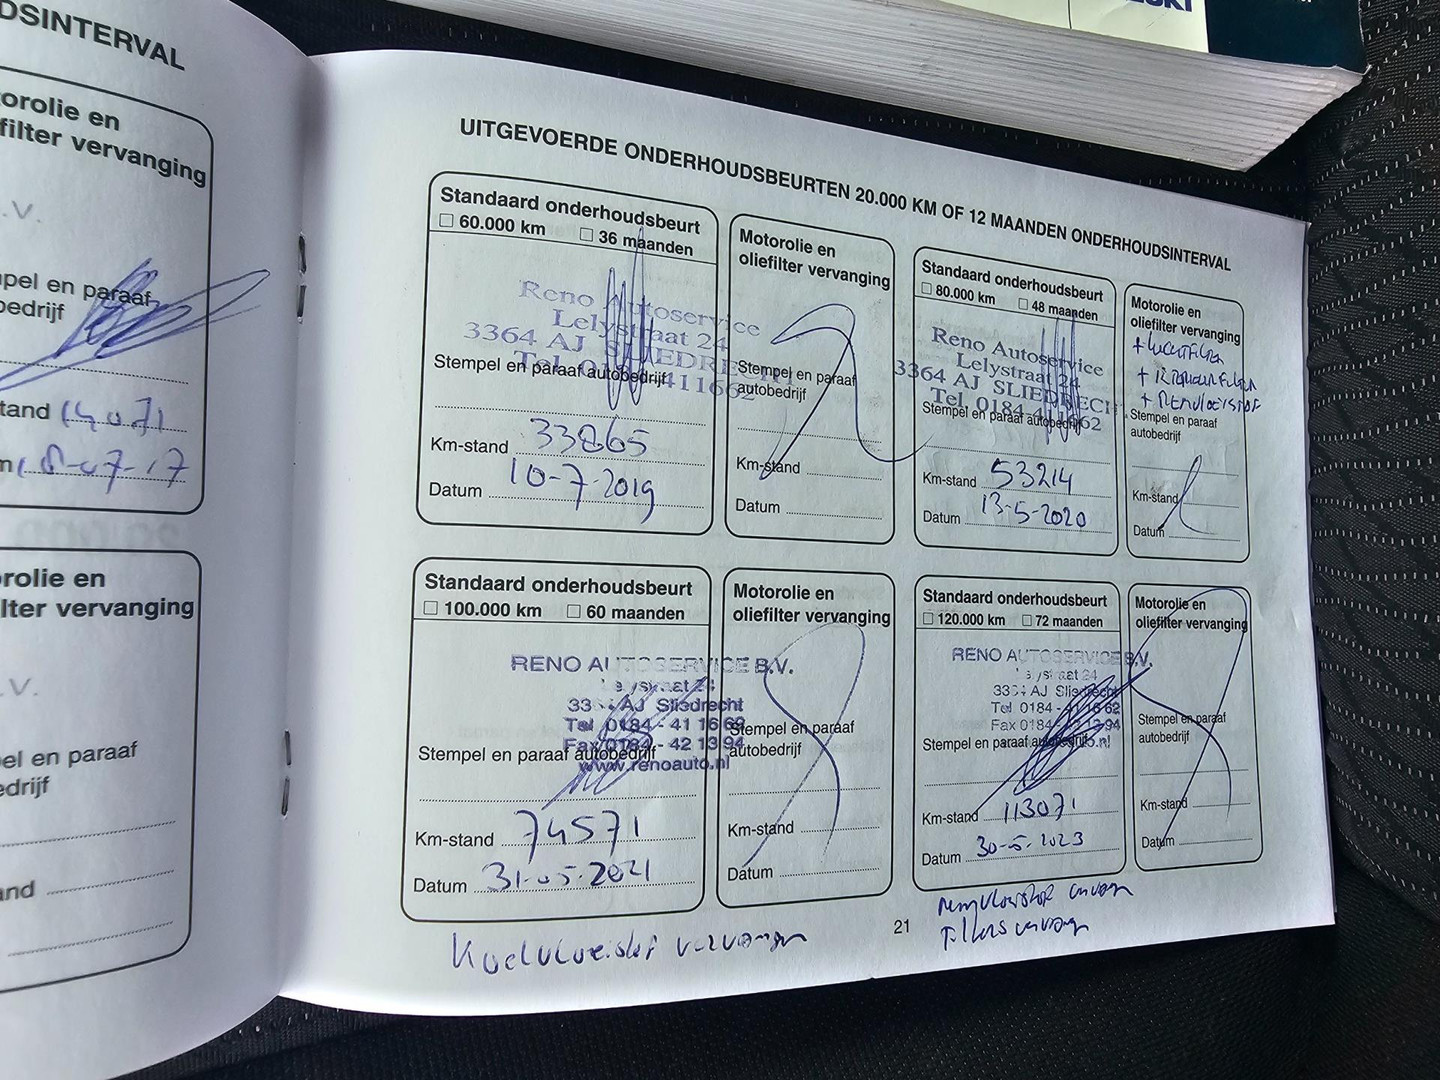 DSINTERVAL
orolie en
filter vervanging
.V.
pel en paraaf
bedrijf
stand 14071
18-07-17
rolie en
lter vervanging
.V.
el en paraaf
edrijf
and
UITGEVOERDE ONDERHOUDSBEURTEN 20.000 KM OF 12 MAANDEN ONDERHOUDSINTERVAL
Standaard onderhoudsbeurt
☐ 60.000 km ☐ 36 maanden
Reno Autoservice
Lelystraat 24
3364 AJ SLIEDRECHT
Tel. 0184-411662
Stempel en paraaf autobedrijf
Km-stand 33865
Datum 10-7-2019
Motorolie en
oliefilter vervanging
Stempel en paraaf
autobedrijf
Km-stand
Datum
Standaard onderhoudsbeurt
☐ 80.000 km ☐ 48 maanden
Reno Autoservice
Lelystraat 24
3364 AJ SLIEDRECH
Tel. 0184-411662
Stempel en paraaf autobedrijf
Km-stand 53214
Datum 13-5-2020
Motorolie en
oliefilter vervanging
+ LUCHTFILTER
+ INTERIEURFILTER
+ REMVLOEISTOF
Stempel en paraaf
autobedrijf
Km-stand
Datum
Standaard onderhoudsbeurt
☐ 100.000 km ☐ 60 maanden
RENO AUTOSERVICE B.V.
Lelystraat 24
3364 AJ Sliedrecht
Tel 0184 - 41 16 62
Fax 0184 - 42 13 94
www.renoauto.nl
Stempel en paraaf autobedrijf
Km-stand 74571
Datum 31-05-2021
Motorolie en
oliefilter vervanging
Stempel en paraaf
autobedrijf
Km-stand
Datum
Standaard onderhoudsbeurt
☐ 120.000 km ☐ 72 maanden
RENO AUTOSERVICE B.V.
Lelystraat 24
3364 AJ Sliedrecht
Tel 0184 - 41 16 62
Fax 0184 - 42 13 94
Stempel en paraaf autobedrijf
Km-stand 113071
Datum 30-5-2023
Motorolie en
oliefilter vervanging
Stempel en paraaf
autobedrijf
Km-stand
Datum
Koelvloeistof vervangen
21
remvloeistof vervangen
Filters vervangen